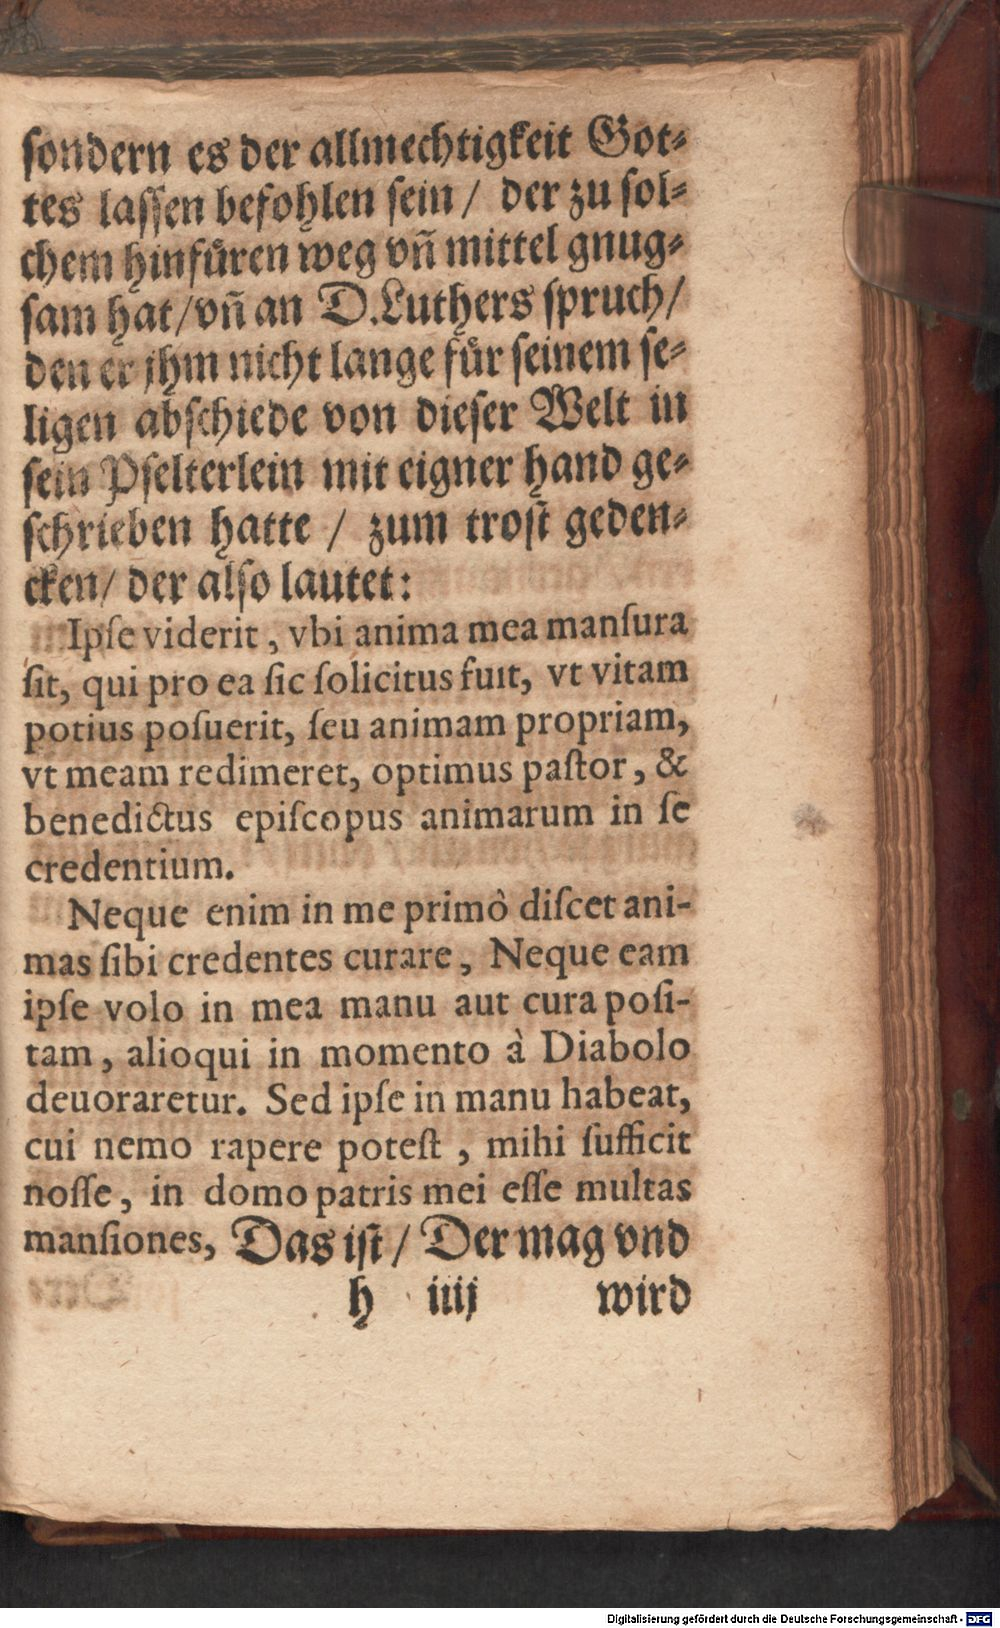 sondern es der allmechtigkeit Got⸗
tes lassen befohlen sein / der zu sol⸗
chem hinfuͤren weg vñ mittel gnug⸗
sam hat/vñ an D.Luthers spruch/
den er jhm nicht lange fuͤr seinem se⸗
ligen abschiede von dieser Welt in
sein Pselterlein mit eigner hand ge⸗
schrieben hatte / zum trost geden⸗
cken/ der also lautet:
Ipſe viderit, vbi anima mea manſura
ſit, qui pro ea ſic ſolicitus fuit, vt vitam
potius poſuerit, ſeu animam propriam,
vt meam redimeret, optimus paſtor, &
benedictus epiſcopus animarum in ſe
credentium.
Neque enim in me primò diſcet ani-
mas ſibi credentes curare, Neque eam
ipſe volo in mea manu aut cura poſi-
tam, alioqui in momento à Diabolo
deuoraretur. Sed ipſe in manu habeat,
cui nemo rapere poteſt, mihi ſufficit
noſſe, in domo patris mei eſſe multas
manſiones, Das ist / Der mag vnd
h iiij wird
Digitalisierung gefördert durch die Deutsche Forschungsgemeinschaft - DFG